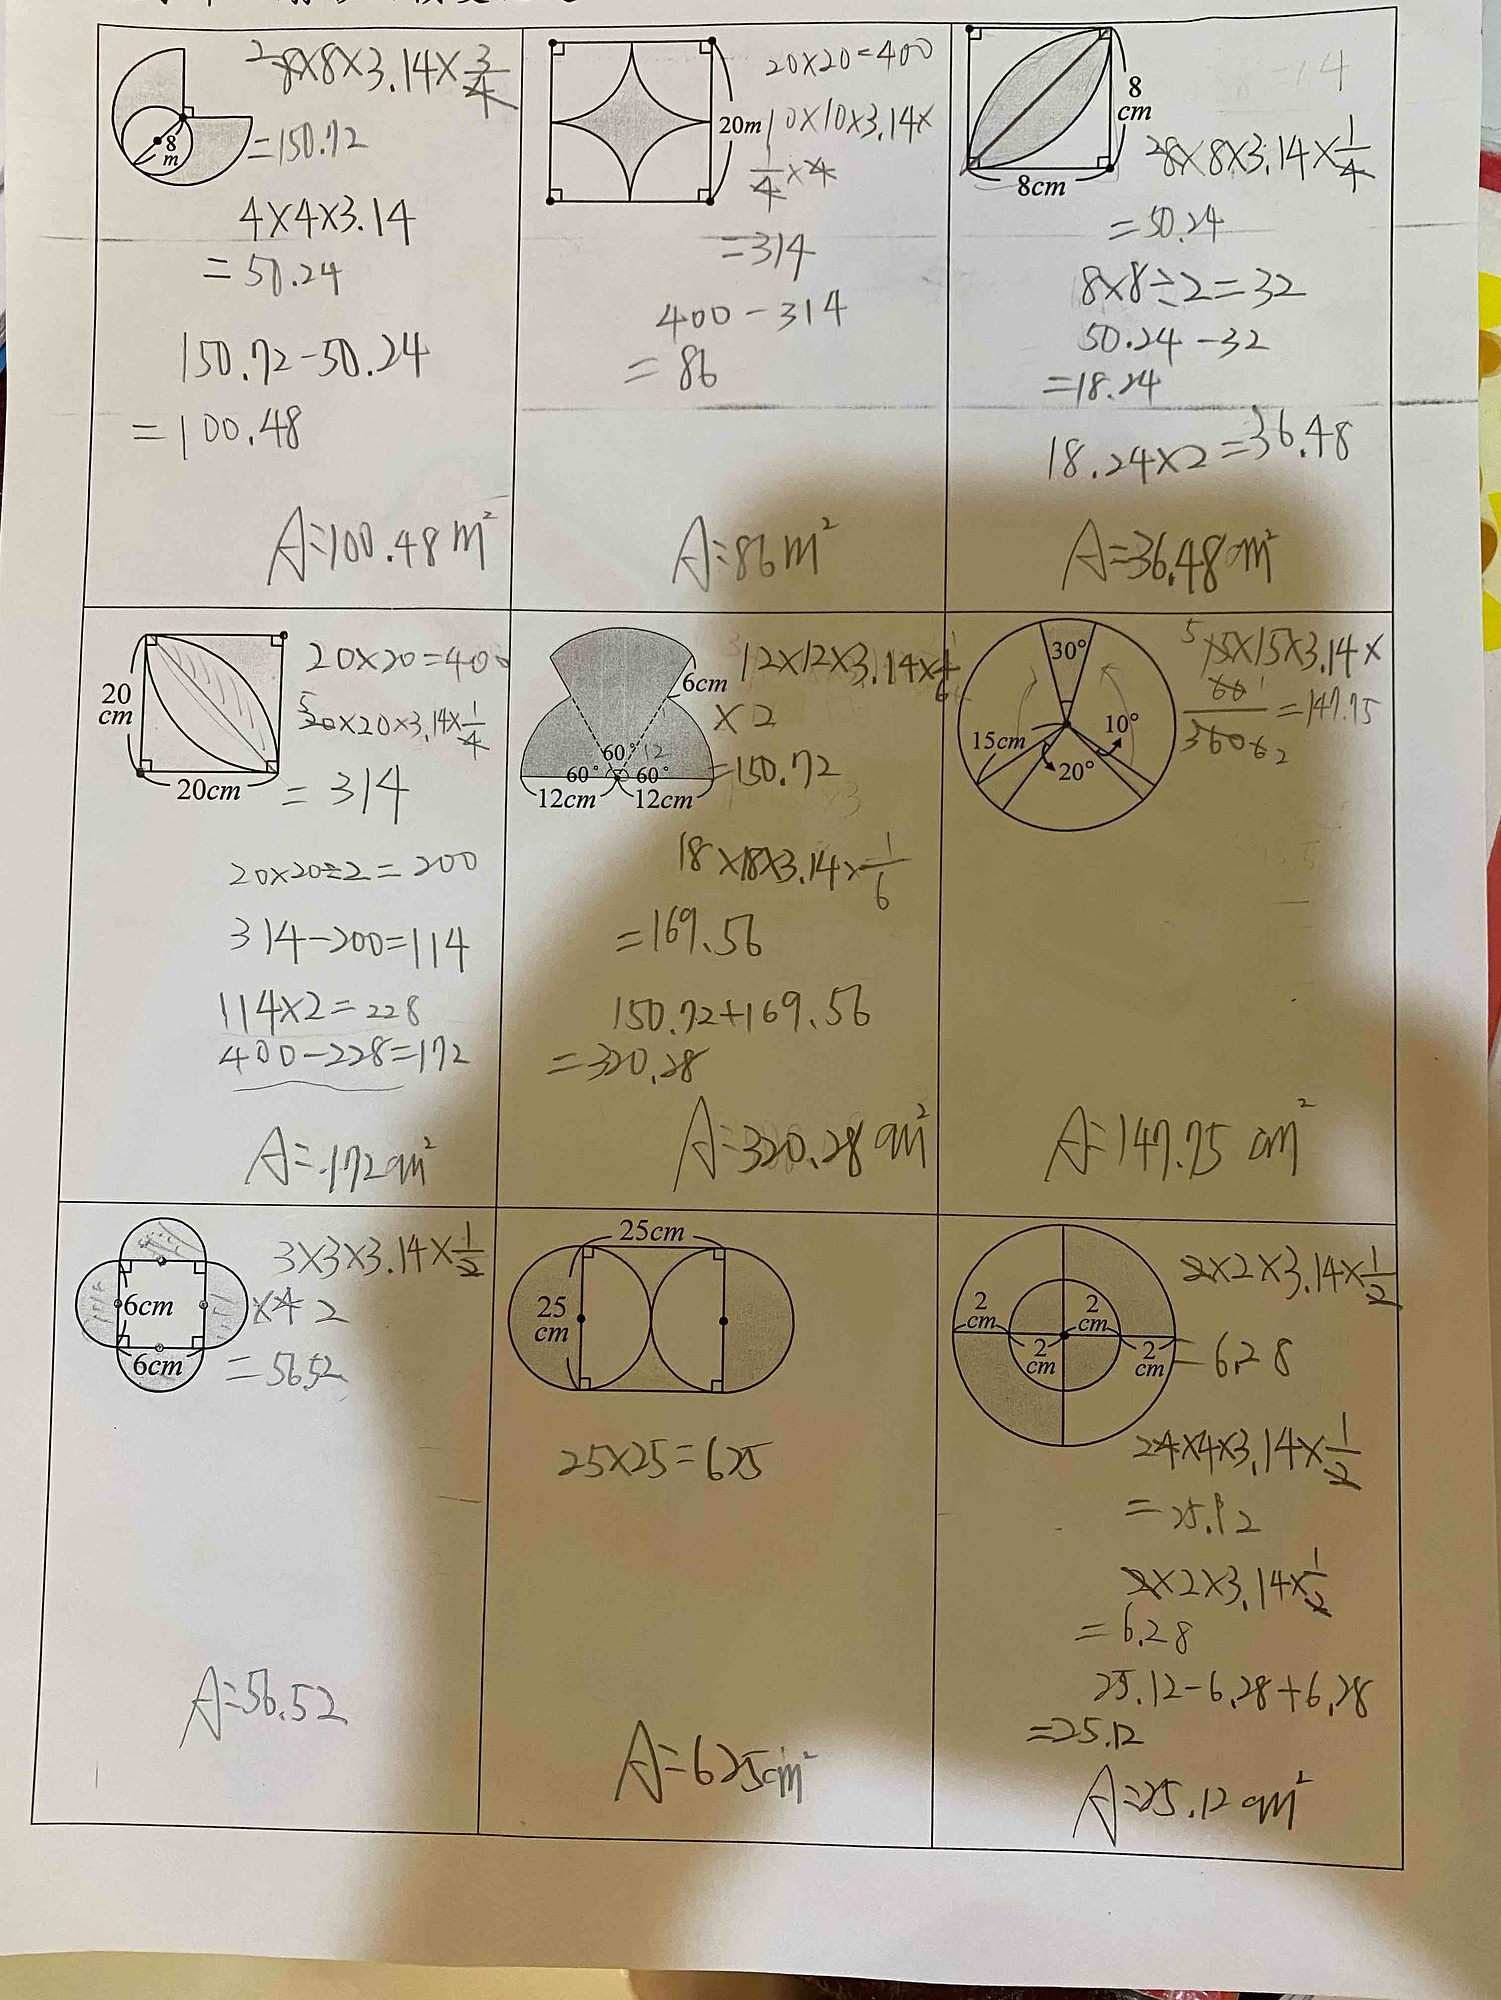 8
m
28×8×3.14×3/4
=150.72
4×4×3.14
=50.24
150.72-50.24
=100.48
A=100.48m²
20m
20×20=400
10×10×3.14×
1/4×4
=314
400-314
=86
A=86m²
8
cm
8cm
28×8×3.14×1/4
=50.24
8×8÷2=32
50.24-32
=18.24
18.24×2=36.48
A=36.48cm²
20
cm
20cm
20×20=400
520×20×3.14×1/4
=314
20×20÷2=200
314-200=114
114×2=228
400-228=172
A=172cm²
6cm
60° 12
60° 60°
12cm 12cm
12×12×3.14×1/6
×2
=150.72
18×18×3.14×1/6
=169.56
150.72+169.56
=320.28
A=320.28cm²
30°
15cm
10°
20°
5 15×15×3.14×
60/360=147.75
A=147.75cm²
6cm
6cm
3×3×3.14×1/2
×4 2
=56.52
A=56.52
25cm
25
cm
25×25=625
A=625cm²
2
cm
2
cm
2
cm
2
cm
2×2×3.14×1/2
=6.28
24×4×3.14×1/2
=25.12
2×2×3.14×1/2
=6.28
25.12-6.28+6.28
=25.12
A=25.12cm²